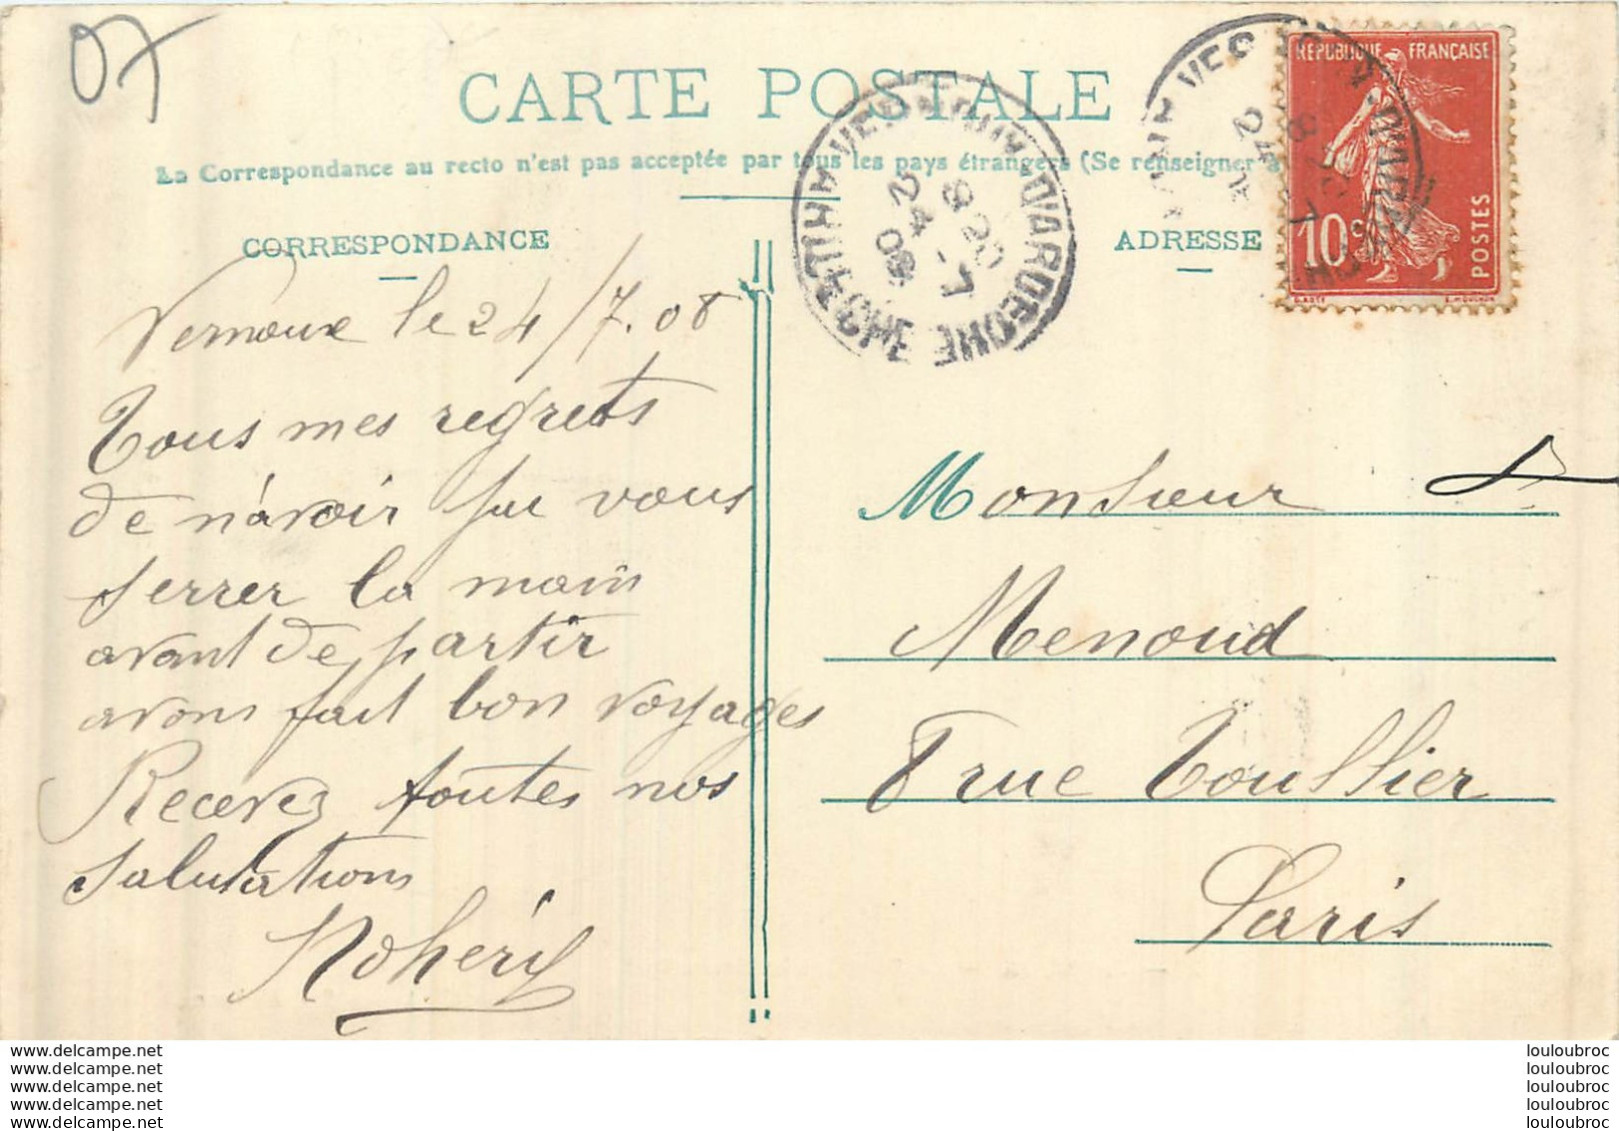 07
CARTE POSTALE
La Correspondance au recto n'est pas acceptée par tous les pays étrangers (Se renseigner à
CORRESPONDANCE
ADRESSE
REPUBLIQUE FRANÇAISE
10c
POSTES
24 -7
08
D'ARDECHE
Vernoux le 24/7.08
Tous mes regrets
de n'avoir pu vous
serrer la main
avant de partir
avons fait bon voyages
Recevez toutes nos
salutations
Monsieur
Menoud
7 rue Toullier
Paris
www.delcampe.net
www.delcampe.net
www.delcampe.net
www.delcampe.net
www.delcampe.net
louloubroc
louloubroc
louloubroc
louloubroc
louloubroc